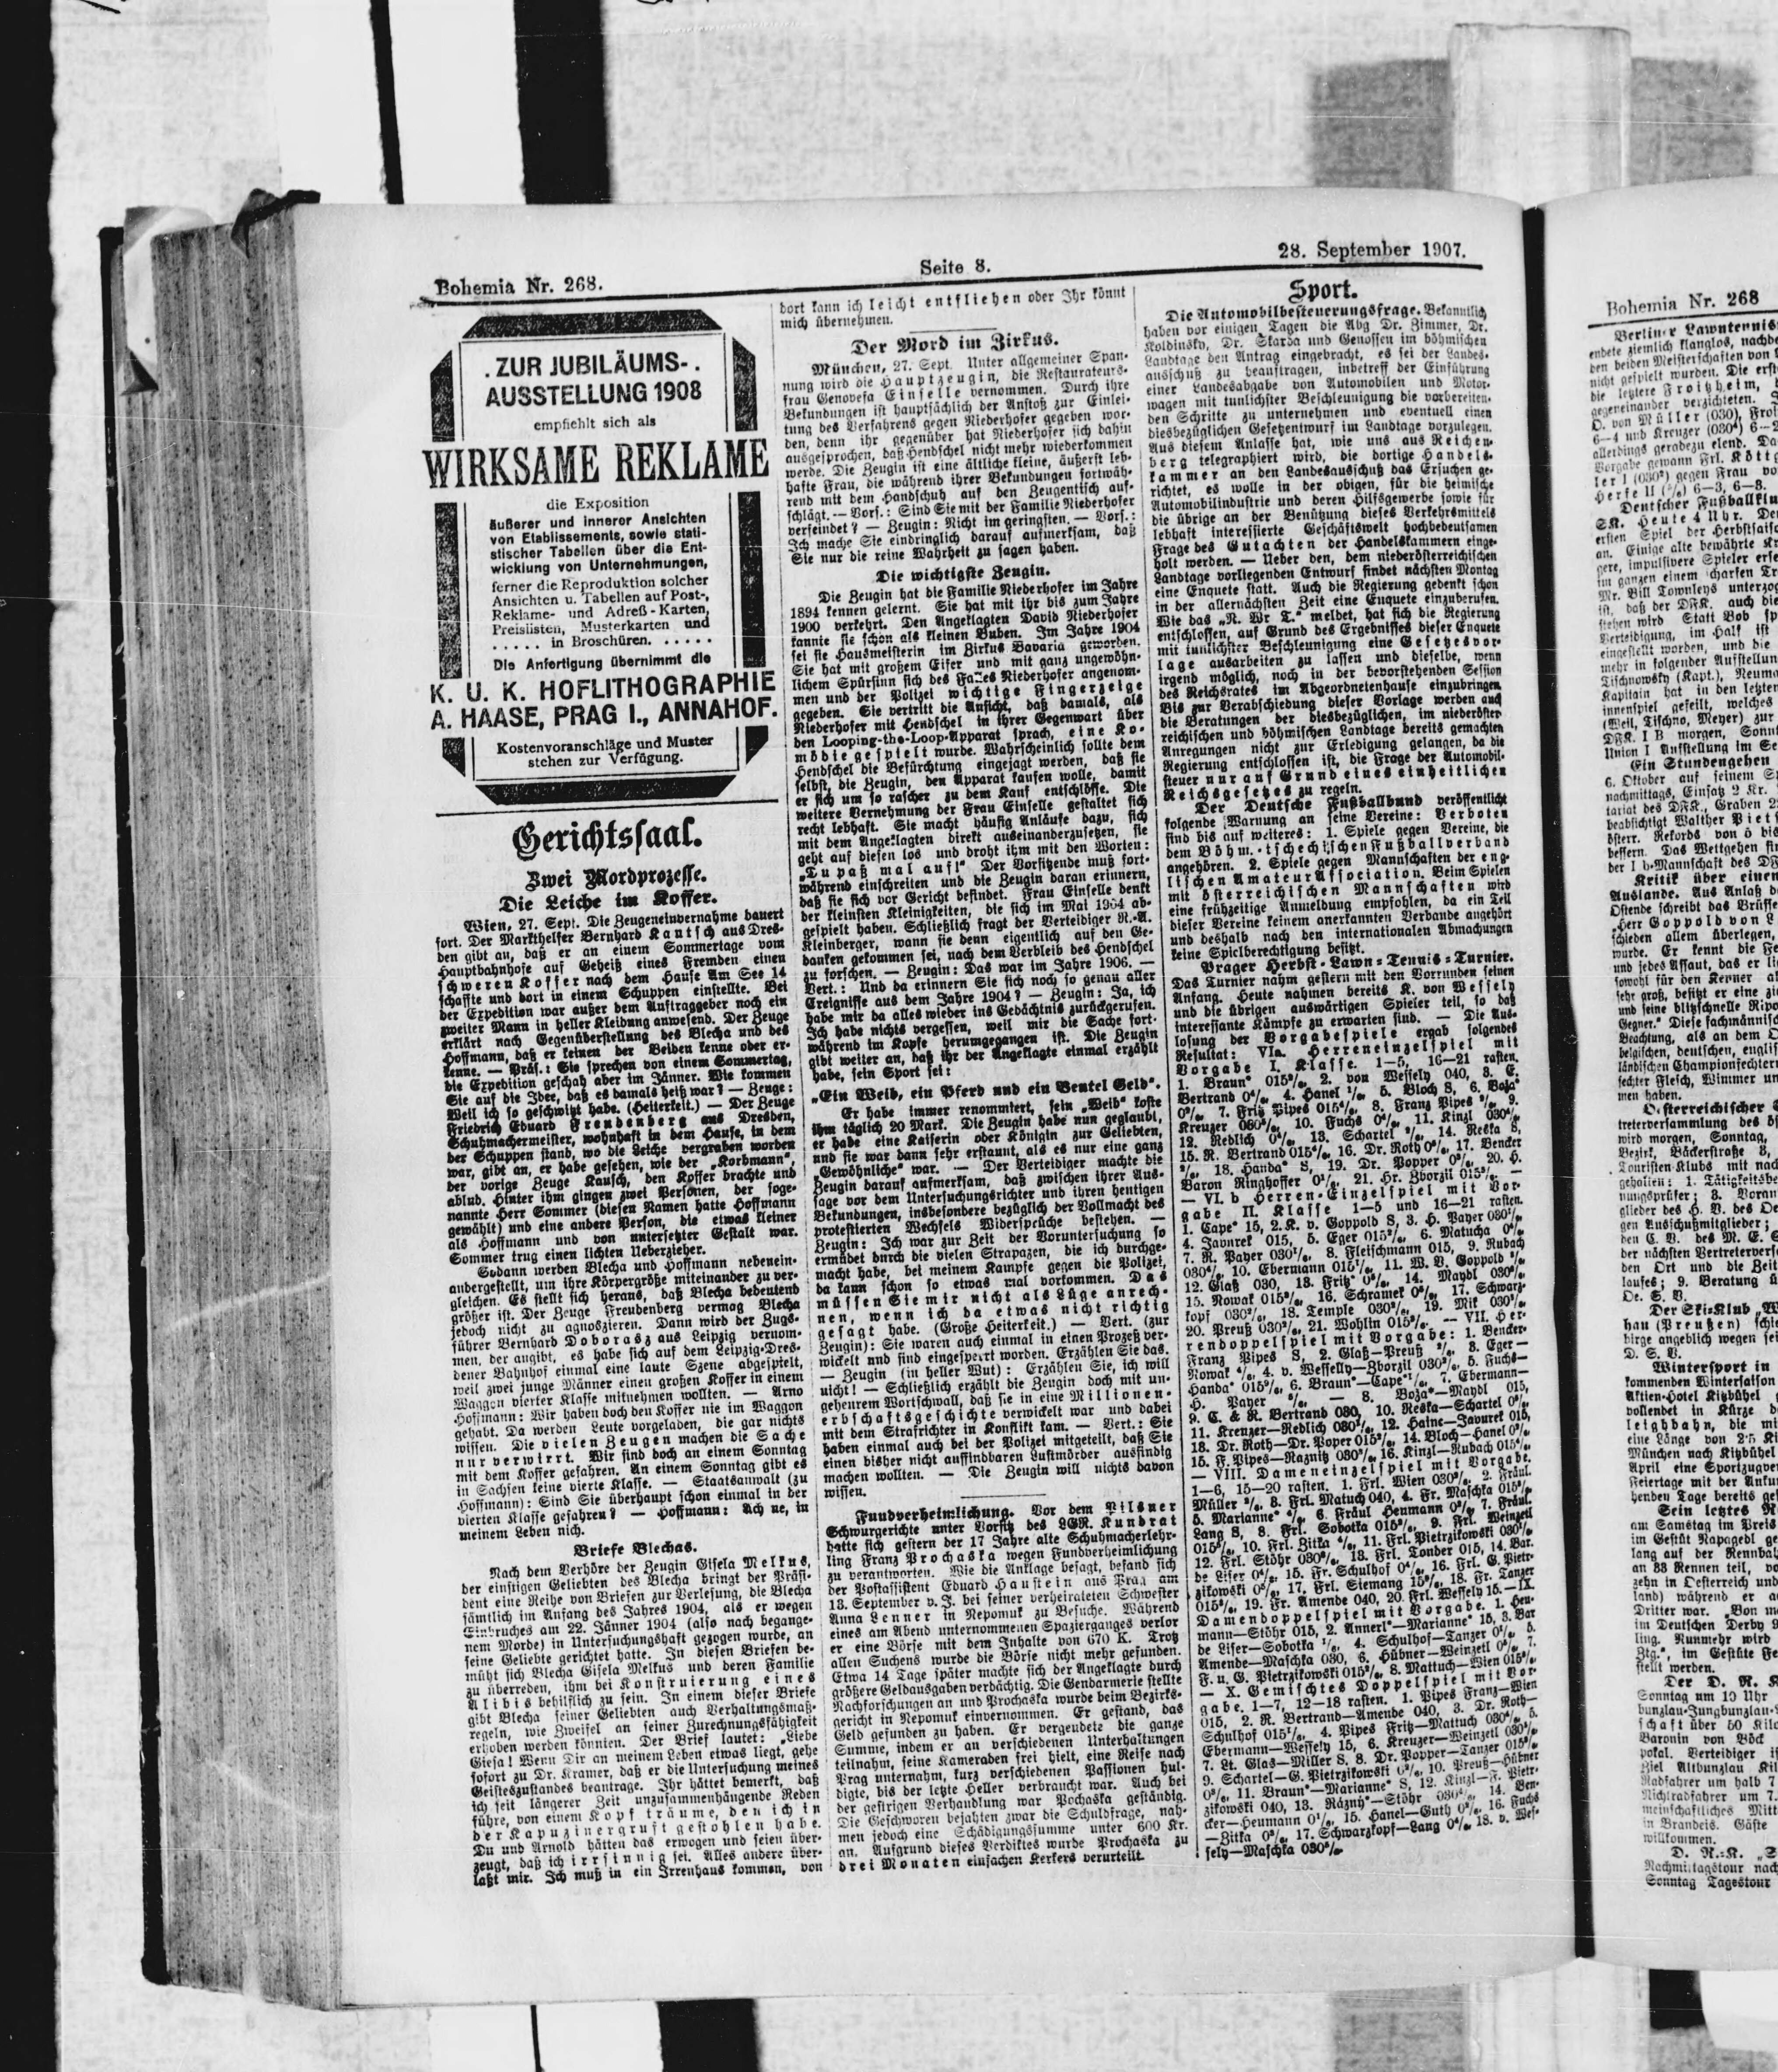 Bohemia Nr. 268.
Seite 8.
28. September 1907.
. ZUR JUBILÄUMS- .
AUSSTELLUNG 1908
empfiehlt sich als
WIRKSAME REKLAME
die Exposition
äußerer und innerer Ansichten
von Etablissements, sowie stati-
stischer Tabellen über die Ent-
wicklung von Unternehmungen,
ferner die Reproduktion solcher
Ansichten u. Tabellen auf Post-,
Reklame- und Adreß-Karten,
Preislisten, Musterkarten und
. . . . . in Broschüren. . . . . .
Die Anfertigung übernimmt die
K. U. K. HOFLITHOGRAPHIE
A. HAASE, PRAG I., ANNAHOF.
Kostenvoranschläge und Muster
stehen zur Verfügung.
Gerichtssaal.
Zwei Mordprozesse.
Die Leiche im Koffer.
Wien, 27. Sept. Die Zeugeneinvernahme dauert
fort. Der Markthelfer Bernhard Kautsch aus Dres-
den gibt an, daß er an einem Sommertage vom
Hauptbahnhofe auf Geheiß eines Fremden einen
schweren Koffer nach dem Hause Am See 14
schaffte und dort in einem Schuppen einstellte. Bei
der Expedition war außer dem Auftraggeber noch ein
zweiter Mann in heller Kleidung anwesend. Der Zeuge
erklärt nach Gegenüberstellung des Blecha und des
Hoffmann, daß er keinen der Beiden kenne oder er-
kenne. — Präs.: Sie sprechen von einem Sommertag,
die Expedition geschah aber im Jänner. Wie kommen
Sie auf die Idee, daß es damals heiß war? — Zeuge:
Weil ich so geschwitzt habe. (Heiterkeit.) — Der Zeuge
Friedrich Eduard Freudenberg aus Dresden,
Schuhmachermeister, wohnhaft in dem Hause, in dem
der Schuppen stand, wo die Leiche vergraben worden
war, gibt an, er habe gesehen, wie der „Korbmann“,
der vorige Zeuge Kausch, den Koffer brachte und
ablud. Hinter ihm gingen zwei Personen, der soge-
nannte Herr Sommer (diesen Namen hatte Hoffmann
gewählt) und eine andere Person, die etwas kleiner
als Hoffmann und von untersetzter Gestalt war.
Sommer trug einen lichten Ueberzieher.
Sodann werden Blecha und Hoffmann nebenein-
andergestellt, um ihre Körpergröße miteinander zu ver-
gleichen. Es stellt sich heraus, daß Blecha bedeutend
größer ist. Der Zeuge Freudenberg vermag Blecha
jedoch nicht zu agnoszieren. Dann wird der Zugs-
führer Bernhard Doborasz aus Leipzig vernom-
men, der angibt, es habe sich auf dem Leipzig-Dres-
dener Bahnhof einmal eine laute Szene abgespielt,
weil zwei junge Männer einen großen Koffer in einem
Waggon vierter Klasse mitnehmen wollten. — Arno
Hoffmann: Wir haben doch den Koffer nie im Waggon
gehabt. Da werden Leute vorgeladen, die gar nichts
wissen. Die vielen Zeugen machen die Sache
nur verwirrt. Wir sind doch an einem Sonntag
mit dem Koffer gefahren. An einem Sonntag gibt es
in Sachsen keine vierte Klasse. — Staatsanwalt (zu
Hoffmann): Sind Sie überhaupt schon einmal in der
vierten Klasse gefahren? — Hoffmann: Ach ne, in
meinem Leben nich.
Briefe Blechas.
Nach dem Verhöre der Zeugin Gisela Melkus,
der einstigen Geliebten des Blecha bringt der Präsi-
dent eine Reihe von Briefen zur Verlesung, die Blecha
sämtlich im Anfang des Jahres 1904, als er wegen
Einbruches am 22. Jänner 1904 (also nach begange-
nem Morde) in Untersuchungshaft gezogen wurde, an
seine Geliebte gerichtet hatte. In diesen Briefen be-
müht sich Blecha Gisela Melkus und deren Familie
zu überreden, ihm bei Konstruierung eines
Alibis behilflich zu sein. In einem dieser Briefe
gibt Blecha seiner Geliebten auch Verhaltungsmaß-
regeln, wie Zweifel an seiner Zurechnungsfähigkeit
erhoben werden könnten. Der Brief lautet: „Liebe
Giesa! Wenn Dir an meinem Leben etwas liegt, gehe
sofort zu Dr. Kramer, daß er die Untersuchung meines
Geisteszustandes beantrage. Ihr hättet bemerkt, daß
ich seit längerer Zeit unzusammenhängende Reden
führe, von einem Kopf träume, den ich in
der Kapuzinergruft gestohlen habe.
Du und Arnold hätten das erwogen und seien über-
zeugt, daß ich irrsinnig sei. Alles andere über-
laßt mir. Ich muß in ein Irrenhaus kommen, von
dort kann ich leicht entfliehen oder Ihr könnt
mich übernehmen.
Der Mord im Zirkus.
München, 27. Sept. Unter allgemeiner Span-
nung wird die Hauptzeugin, die Restaurateurs-
frau Genovefa Einselle vernommen. Durch ihre
Bekundungen ist hauptsächlich der Anstoß zur Einlei-
tung des Verfahrens gegen Niederhofer gegeben wor-
den, denn ihr gegenüber hat Niederhofer sich dahin
ausgesprochen, daß Hendschel nicht mehr wiederkommen
werde. Die Zeugin ist eine ältliche kleine, äußerst leb-
hafte Frau, die während ihrer Bekundungen fortwäh-
rend mit dem Handschuh auf den Zeugentisch auf-
schlägt. — Vors.: Sind Sie mit der Familie Niederhofer
verfeindet? — Zeugin: Nicht im geringsten. — Vors.:
Ich mache Sie eindringlich darauf aufmerksam, daß
Sie nur die reine Wahrheit zu sagen haben.
Die wichtigste Zeugin.
Die Zeugin hat die Familie Niederhofer im Jahre
1894 kennen gelernt. Sie hat mit ihr bis zum Jahre
1900 verkehrt. Den Angeklagten David Niederhofer
kannte sie schon als kleinen Buben. Im Jahre 1904
sei sie Hausmeisterin im Zirkus Bavaria geworden.
Sie hat mit großem Eifer und mit ganz ungewöhn-
lichem Spürsinn sich des Falles Niederhofer angenom-
men und der Polizei wichtige Fingerzeige
gegeben. Sie vertritt die Ansicht, daß damals, als
Niederhofer mit Hendschel in ihrer Gegenwart über
den Looping-the-Loop-Apparat sprach, eine Ko-
mödie gespielt wurde. Wahrscheinlich sollte dem
Hendschel die Befürchtung eingejagt werden, daß sie
selbst, die Zeugin, den Apparat kaufen wolle, damit
er sich um so rascher zu dem Kauf entschlösse. Die
weitere Vernehmung der Frau Einselle gestaltet sich
recht lebhaft. Sie macht häufig Anläufe dazu, sich
mit dem Angeklagten direkt auseinanderzusetzen, sie
geht auf diesen los und droht ihm mit den Worten:
„Du paß mal auf!“ Der Vorsitzende muß fort-
während einschreiten und die Zeugin daran erinnern,
daß sie sich vor Gericht befindet. Frau Einselle denkt
der kleinsten Kleinigkeiten, die sich im Mai 1904 ab-
gespielt haben. Schließlich fragt der Verteidiger R.-A.
Kleinberger, wann sie denn eigentlich auf den Ge-
danken gekommen sei, nach dem Verbleib des Hendschel
zu forschen. — Zeugin: Das war im Jahre 1906. —
Vert.: Und da erinnern Sie sich noch so genau aller
Ereignisse aus dem Jahre 1904? — Zeugin: Ja, ich
habe mir da alles wieder ins Gedächtnis zurückgerufen.
Ich habe nichts vergessen, weil mir die Sache fort-
während im Kopfe herumgegangen ist. Die Zeugin
gibt weiter an, daß ihr der Angeklagte einmal erzählt
habe, sein Sport sei:
„Ein Weib, ein Pferd und ein Beutel Geld“.
Er habe immer renommiert, sein „Weib“ koste
ihm täglich 20 Mark. Die Zeugin habe nun geglaubt,
er habe eine Kaiserin oder Königin zur Geliebten,
und sie war dann sehr erstaunt, als es nur eine ganz
„Gewöhnliche“ war. — Der Verteidiger machte die
Zeugin darauf aufmerksam, daß zwischen ihrer Aus-
sage vor dem Untersuchungsrichter und ihren heutigen
Bekundungen, insbesondere bezüglich der Vollmacht des
protestierten Wechsels Widersprüche bestehen. —
Zeugin: Ich war zur Zeit der Voruntersuchung so
ermüdet durch die vielen Strapazen, die ich durchge-
macht habe, bei meinem Kampfe gegen die Polizei,
da kann schon so etwas mal vorkommen. Das
müssen Sie mir nicht als Lüge anrech-
nen, wenn ich da etwas nicht richtig
gesagt habe. (Große Heiterkeit.) — Vert. (zur
Zeugin): Sie waren auch einmal in einen Prozeß ver-
wickelt und sind eingesperrt worden. Erzählen Sie das.
— Zeugin (in heller Wut): Erzählen Sie, ich will
nicht! — Schließlich erzählt die Zeugin doch mit un-
geheurem Wortschwall, daß sie in eine Millionen-
erbschaftsgeschichte verwickelt war und dabei
mit dem Strafrichter in Konflikt kam. — Vert.: Sie
haben einmal auch bei der Polizei mitgeteilt, daß Sie
einen bisher nicht auffindbaren Lustmörder ausfindig
machen wollten. — Die Zeugin will nichts davon
wissen.
Fundverheimlichung. Vor dem Pilsner
Schwurgerichte unter Vorsitz des LGR. Kundrat
hatte sich gestern der 17 Jahre alte Schuhmacherlehr-
ling Franz Prochaska wegen Fundverheimlichung
zu verantworten. Wie die Anklage besagt, befand sich
der Postassistent Eduard Haustein aus Prag am
13. September v. J. bei seiner verheirateten Schwester
Anna Lenner in Nepomuk zu Besuche. Während
eines am Abend unternommenen Spazierganges verlor
er eine Börse mit dem Inhalte von 670 K. Trotz
allen Suchens wurde die Börse nicht mehr gefunden.
Etwa 14 Tage später machte sich der Angeklagte durch
größere Geldausgaben verdächtig. Die Gendarmerie stellte
Nachforschungen an und Prochaska wurde beim Bezirks-
gericht in Nepomuk einvernommen. Er gestand, das
Geld gefunden zu haben. Er vergeudete die ganze
Summe, indem er an verschiedenen Unterhaltungen
teilnahm, seine Kameraden frei hielt, eine Reise nach
Prag unternahm, kurz verschiedenen Passionen hul-
digte, bis der letzte Heller verbraucht war. Auch bei
der gestrigen Verhandlung war Pochaska geständig.
Die Geschworen bejahten zwar die Schuldfrage, nah-
men jedoch eine Schädigungssumme unter 600 Kr.
an. Aufgrund dieses Verdiktes wurde Prochaska zu
drei Monaten einfachen Kerkers verurteilt.
Sport.
Die Automobilbesteuerungsfrage. Bekanntlich
haben vor einigen Tagen die Abg Dr. Zimmer, Dr.
Koldinsky, Dr. Skarda und Genossen im böhmischen
Landtage den Antrag eingebracht, es sei der Landes-
ausschuß zu beauftragen, inbetreff der Einführung
einer Landesabgabe von Automobilen und Motor-
wagen mit tunlichster Beschleunigung die vorbereiten-
den Schritte zu unternehmen und eventuell einen
diesbezüglichen Gesetzentwurf im Landtage vorzulegen.
Aus diesem Anlasse hat, wie uns aus Reichen-
berg telegraphiert wird, die dortige Handels-
kammer an den Landesausschuß das Ersuchen ge-
richtet, es wolle in der obigen, für die heimische
Automobilindustrie und deren Hilfsgewerbe sowie für
die übrige an der Benützung dieses Verkehrsmittels
lebhaft interessierte Geschäftswelt hochbedeutsamen
Frage des Gutachten der Handelskammern einge-
holt werden. — Ueber den, dem niederösterreichischen
Landtage vorliegenden Entwurf findet nächsten Montag
eine Enquete statt. Auch die Regierung gedenkt schon
in der allernächsten Zeit eine Enquete einzuberufen.
Wie das „N. Wr T.“ meldet, hat sich die Regierung
entschlossen, auf Grund des Ergebnisses dieser Enquete
mit tunlichster Beschleunigung eine Gesetzesvor-
lage ausarbeiten zu lassen und dieselbe, wenn
irgend möglich, noch in der bevorstehenden Session
des Reichsrates im Abgeordnetenhause einzubringen.
Bis zur Verabschiedung dieser Vorlage werden auch
die Beratungen der diesbezüglichen, im niederöster-
reichischen und böhmischen Landtage bereits gemachten
Anregungen nicht zur Erledigung gelangen, da die
Regierung entschlossen ist, die Frage der Automobil-
steuer nur auf Grund eines einheitlichen
Reichsgesetzes zu regeln.
Der Deutsche Fußballbund veröffentlicht
folgende Warnung an seine Vereine: Verboten
sind bis auf weiteres: 1. Spiele gegen Vereine, die
dem Böhm.-tschechischen Fußballverband
angehören. 2. Spiele gegen Mannschaften der eng-
lischen Amateur Association. Beim Spielen
mit österreichischen Mannschaften wird
eine frühzeitige Anmeldung empfohlen, da ein Teil
dieser Vereine keinem anerkannten Verbande angehört
und deshalb nach den internationalen Abmachungen
keine Spielberechtigung besitzt.
Prager Herbst-Lawn-Tennis-Turnier.
Das Turnier nahm gestern mit den Vorrunden seinen
Anfang. Heute nahmen bereits K. von Wessely
und die übrigen auswärtigen Spieler teil, so daß
interessante Kämpfe zu erwarten sind. — Die Aus-
losung der Vorgabespiele ergab folgendes
Resultat: VIa. Herreneinzelspiel mit
Vorgabe I. Klasse. 1—5, 16—21 rasten.
1. Braun* 015 2. von Wessely 040, 3. E.
Bertrand 4. Hanel 5. Bloch S, 6. Boža*
7. Fritz Pipes 8. Franz Pipes 9.
Kreuzer 10. Fuchs 11. Kinzl
12. Redlich 13. Schartel 14. Reska S,
15. R. Bertrand 16. Dr. Roth 17. Bencker
18. Handa* S, 19. Dr. Popper 20. H.
Baron Ringhoffer 21. Hr. Zborzil —
— VI. b Herren-Einzelspiel mit Vor-
gabe II. Klasse 1—5 und 16—21 rasten.
1. Cape* 15, 2. K. v. Goppold S, 3. H. Payer
4. Javurek 015, 5. Eger 6. Matucha
7. R. Payer 8. Fleischmann 015, 9. Rubach
10. Ebermann 11. W. V. Goppold
12. Glaß 030, 13. Fritz* 14. Maydl
15. Nowak 16. Schramek 17. Schwarz-
kopf 18. Temple 19. Mik
20. Preuß 21. Wohlin — VII. Her-
rendoppelspiel mit Vorgabe: 1. Bencker-
Franz Pipes S, 2. Glaß—Preuß 3. Eger—
Nowak 4. v. Wesselly—Zborzil 5. Fuchs—
Handa* 6. Braun*—Cape* 7. Ebermann—
H. Payer — 8. Boža*—Maydl 015,
9. E. & R. Bertrand 030, 10. Reska—Schartel
11. Kreuzer—Redlich 12. Haine—Javurek 015,
13. Dr. Roth—Dr. Poper 14. Bloch—Hanel
15. F. Pipes—Razniž 16. Kinzl—Rubach
— VIII. Dameneinzelspiel mit Vorgabe.
1—6, 15—20 rasten. 1. Frl. Wien 2. Fräul.
Müller 3. Frl. Matuch 040, 4. Fr. Maschka
5. Marianne* 6. Fräul Heumann 7. Fräul.
Lang S, 8. Frl. Sobotka 9. Frl. Weinzetl
10. Frl. Zitka 11. Frl. Pietrzikowski
12. Frl. Stöhr 13. Frl. Tonder 015, 14. Bar.
de Liser 15. Fr. Schulhof 16. Frl. G. Pietr-
zikowski 17. Frl. Siemang 18. Fr. Tanzer
19. Fr. Amende 040, 20. Frl. Wessely 15. — IX.
Damendoppelspiel mit Vorgabe. 1. Heu-
mann—Stöhr 015, 2. Annerl*—Marianne* 15, 3. Bar
de Liser—Sobotka 4. Schulhof—Tanzer 5.
Amende—Maschka 030, 6. Hübner—Weinzetl 7.
F. u. G. Pietrzikowski 8. Mattuch—Wien
— X. Gemischtes Doppelspiel mit Vor-
gabe. 1—7, 12—18 rasten. 1. Pipes Franz—Wien
015, 2. R. Bertrand—Amende 040, 3. Dr. Roth—
Schulhof 4. Pipes Fritz—Mattuch 5.
Ebermann—Wessely 15, 6. Kreuzer—Weinzetl
7. Lt. Glas—Miller S, 8. Dr. Popper—Tanzer
9. Schartel—G. Pietrzikowski 10. Preuß—Hübner
11. Braun*—Marianne* S, 12. Kinzl—F. Pietr-
zikowski 040, 13. Rázny*—Stöhr 14. Ben-
cker—Heumann 15. Hanel—Guth 16. Fuchs
—Zitka 17. Schwarzkopf—Lang 18. v. Wes-
sely—Maschka
Bohemia Nr. 268
Berliner Lawntennis
endete ziemlich klanglos, nachde
den beiden Meisterschaften von
nicht gespielt wurden. Die erst
die letztere Froitzheim,
gegeneinander verzichteten.
O. von Müller (030), Froi
allerdings geradezu elend. Da
Vorgabe gewann Frl. Köttg
gegen Frau vo
6—3, 6—8.
Deutscher Fußballklu
SK. Heute 4 Uhr. De
ersten Spiel der Herbstsaiso
an. Einige alte bewährte Kr
gere, impulsivere Spieler erse
im ganzen einem scharfen Tr
Mr. Bill Townleys unterzog
ist, daß der DFK. auch die
stehen wird Statt Bob sp
Verteidigung, im Half ist
eingestellt worden, und die
mehr in folgender Aufstellun
Tischnowsky (Kapt.), Neuma
Kapitain hat in den letzten
innenspiel gefeilt, welches
(Weil, Tischno, Meyer) zur
DFK. I B morgen, Sonnt
Union I Aufstellung im Se
Ein Stundengehen
6. Oktober auf seinem S
nachmittags, Einsatz 2 Kr.
tariat des DFK., Graben 2
beabsichtigt Walther Piets
österr. Rekords von 5 bis
bessern. Das Wettgehen fin
der I b-Mannschaft des DF
Kritik über einen
Auslande. Aus Anlaß d
Ostende schreibt das Brüsse
„Herr Goppold von L
schieden allem überlegen,
wurde. Er kennt die Fe
und jedes Assaut, das er li
sowohl für den Kenner al
sehr groß, besitzt er eine zi
und seine blitzschnelle Ripo
Gegner.“ Diese fachmännisch
Beachtung, als an dem O
belgischen, deutschen, englis
ländischen Championfechtern
fechter Flesch, Wimmer un
men haben.
Oesterreichischer
treterversammlung des öf
wird morgen, Sonntag,
Bezirk, Bäckerstraße 3,
Touristen-Klubs mit nach
gehalten: 1. Tätigkeitsbe
nungsprüfer; 3. Voran
glieder des H. V. des Oe
gen Ausschußmitglieder;
den C. V. des M. E. S
der nächsten Vertreterverf
den Ort und die Zeit
laufes; 9. Beratung ü
Oe. S. V.
Der Ski-Klub „W
hau (Preußen) schle
birge angeblich wegen sei
D. S. V.
Wintersport in
kommenden Wintersaison
Aktien-Hotel Kitzbühel
vollendet in Kürze d
leighbahn, die mi
eine Länge von 2·5 Ki
München nach Kitzbühel
April eine Sportzugver
Feiertage mit der Ankun
henden Tage bereits ge
Sein letztes R
am Samstag im Preis
im Gestüt Napagedl ge
lang auf der Rennbah
an 33 Rennen teil, vo
zehn in Oesterreich und
land) während er a
Dritter war. „Von m
im Deutschen Derby 9
ling. Nunmehr wird
Ztg.“, im Gestüte Fe
stellt werden.
Der D. R. K
Sonntag um 10 Uhr
bunzlau-Jungbunzlau-
schaft über 50 Kilo
Baronin von Böck
pokal. Verteidiger is
Ziel Altbunzlau Kil
Radfahrer um halb 7
Nichtradfahrer um 7.
meinschaftliches Mitt
in Brandeis. Gäste
willkommen.
D. R.-K. „S
Nachmittagstour nach
Sonntag Tagestour